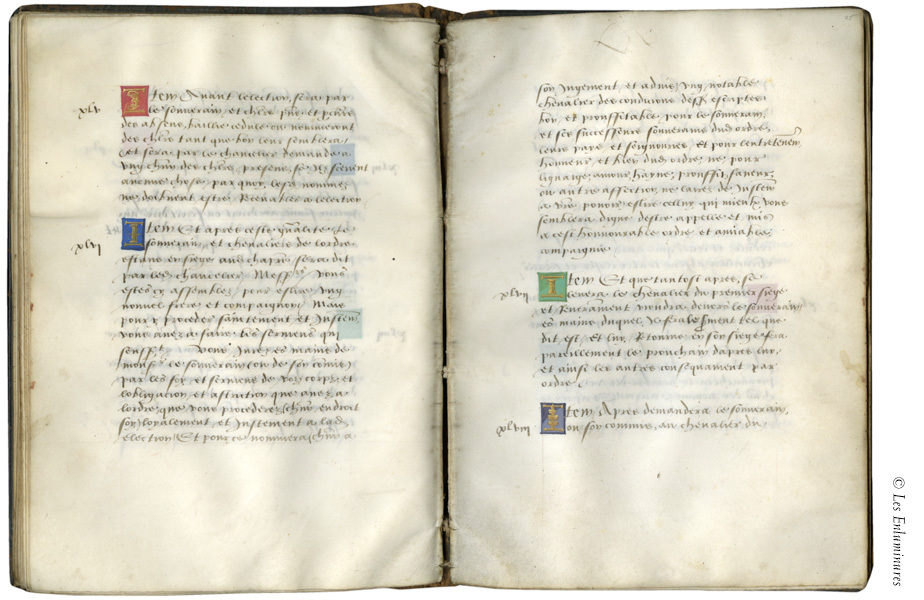 xlv
Item Avant lelection, sera par
le souverain, et chlrs pns et procurs
des absens, baillee cedule ou nommeront
des chlrs tant que bon leur semblera
et sera par le chancelier demande a
ung chun des chlrs presens, se ilz scevent
aucunes choses par quoy, les nommez
ne doibvent estre Recevables a lelection
xlvi
Item Et apres ceste qualite, le
souverain, et chevaliers de lordre
estans en siege aud chapre sera dit
par les chancelier Messrs vous
estes cy assemblez, pour eslire ung
nouvel frere et compaignon Mais
pour y proceder sainctement et Justem
vous avez a faire les sermens qui
sensst. Vous Jurez es mains de
monsr le souverain (ou de son comis)
par les foy, et sermens de voz corps, et
lobligacion, et astriction que avez a
lordre, que vous procederez, chun endroit
soy, loyalement, et Justement a lad
election, Et pour ce nommera chun a
25
son Jugement et advis, ung notable
chevalier des condicions dessus exceptees
bon, et prouffitable, pour le souverain,
et ses successeurs souverains dud ordre,
leurs pays et seignories, et pour lentretenem
honneur et bien dud ordre, ne pour
lignaige, amour, hayne, prouffit, faveur,
ou autre affection, ne laires de Justem
a vre povoir eslire celluy, qui mieulx, vous
semblera, digne destre appelle et mis
a cest honnourable ordre et amiable
compaignie.
xlvii
Item Et que tantost apres, se
levera le chevalier du premier siege
et Reveramment viendra devers le souverain
es mains duquel Il fera le serment tel que
dit est, et luy, Retourne en son siege fera
pareillement le prouchain dapres luy,
et ainsi les autres consequament par
ordre.
xlviii
Item Apres demandera le souverain,
ou son commis, au chevalier du
© Les Enluminures